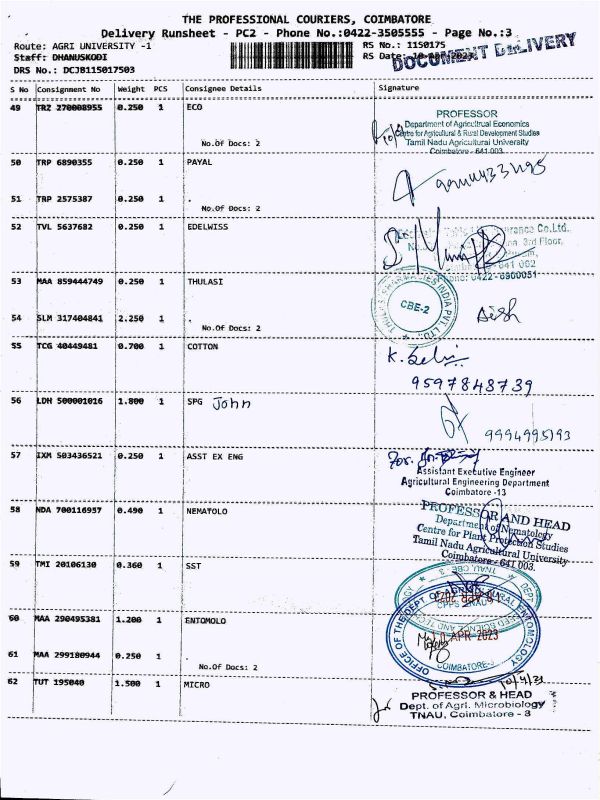 THE PROFESSIONAL COURIERS, COIMBATORE
Delivery Runsheet - PC2 - Phone No.:0422-3505555 - Page No.:3
Route: AGRI UNIVERSITY -1
RS No.: 1150175
DOCUMENT DELIVERY
Staff: DHANUSKODI
RS Date:
DRS No.: DCJB115017503
S No Consignment No Weight PCS Consignee Details Signature
49 TRZ 270008955 0.250 1 ECO
No.Of Docs: 2
PROFESSOR
Department of Agricultrual Economics
Centre for Agricultural & Rural Development Studies
Tamil Nadu Agricultural University
Coimbatore - 641 003
50 TRP 6890355 0.250 1 PAYAL
51 TRP 2575387 0.250 1 .
No.Of Docs: 2
52 TVL 5637682 0.250 1 EDELWISS
Co.Ltd.,
3rd Floor,
641 002
0422-6900051
53 MAA 859444749 0.250 1 THULASI
THULASI PHARMACIES INDIA PVT. LTD.
CBE-2
54 SLM 317404841 2.250 1 .
No.Of Docs: 2
55 TCG 40449481 0.700 1 COTTON
9597848739
56 LDH 500001016 1.800 1 SPG John
9994995193
57 IXM 503436521 0.250 1 ASST EX ENG
For.
Assistant Executive Engineer
Agricultural Engineering Department
Coimbatore -13
58 NDA 700116957 0.490 1 NEMATOLO
PROFESSOR AND HEAD
Department of Nematology
Centre for Plant Protection Studies
Tamil Nadu Agricultural University
Coimbatore - 641 003.
59 TMI 20106130 0.360 1 SST
TNAU, CBE - 3
60 MAA 290495381 1.200 1 ENTOMOLO
OFFICE OF THE DEPT OF AGRICULTURAL ENTOMOLOGY
APR 2023
COIMBATORE-3
61 MAA 299180944 0.250 1 .
No.Of Docs: 2
62 TUT 195040 1.500 1 MICRO
10/4/23
PROFESSOR & HEAD
Dept. of Agri. Microbiology
TNAU, Coimbatore - 3